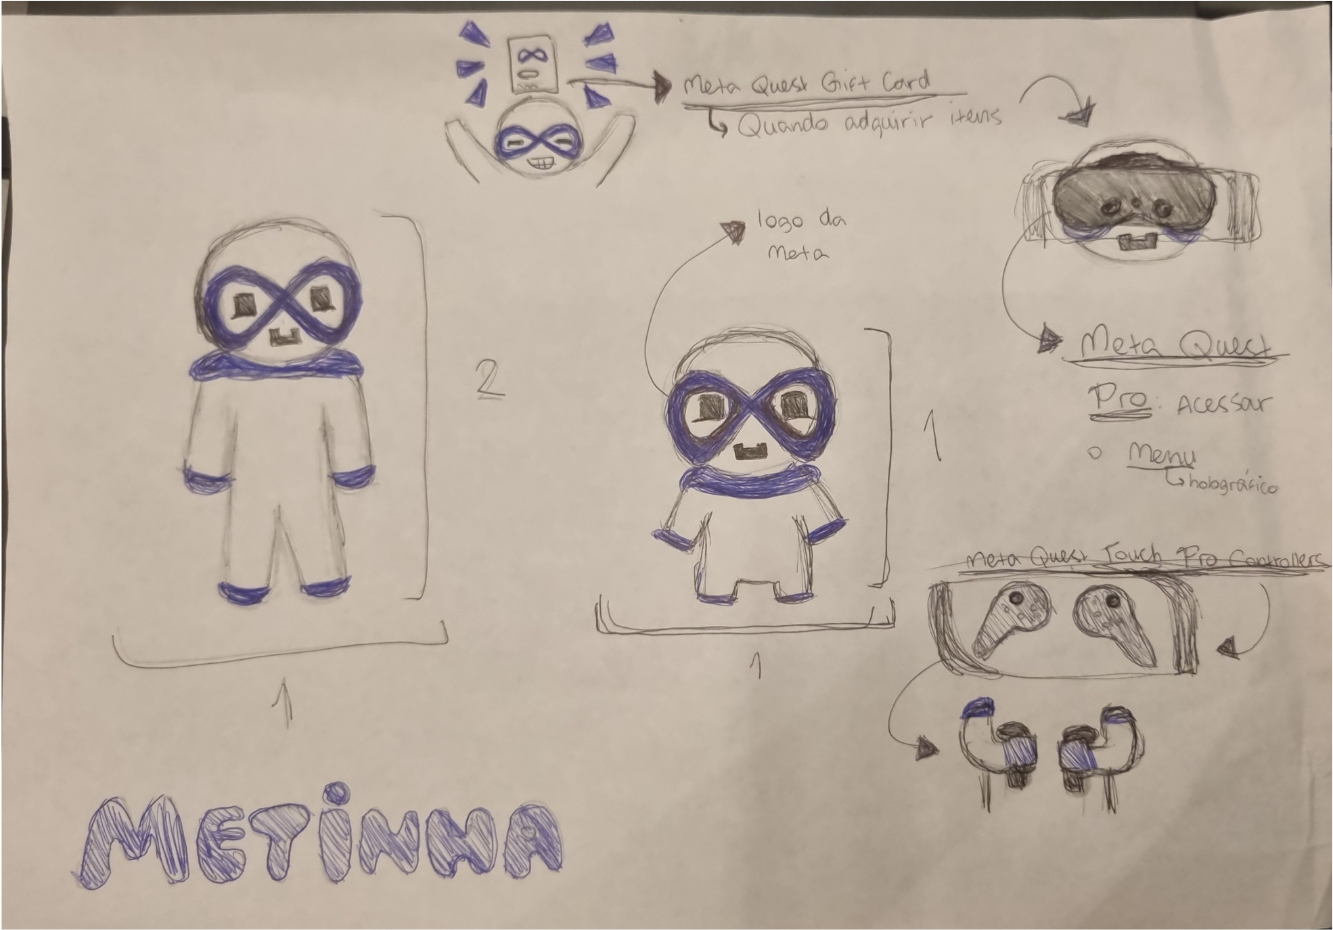 Meta Quest Gift Card
Quando adquirir itens
logo da
Meta
2
1
1
1
Meta Quest
Pro: Acessar
o Menu
holográfico
Meta Quest Touch Pro Controllers
METINNA